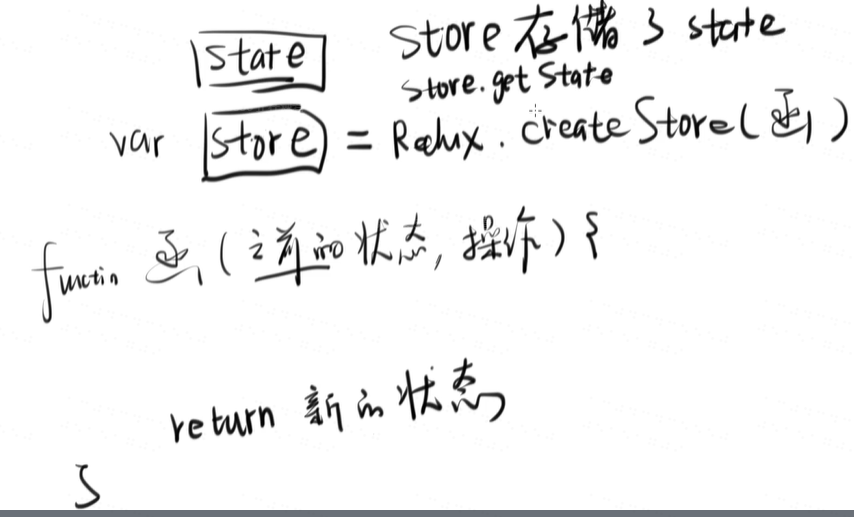 state store存储了state
store.getState
var store = Redux.createStore(函1)
functin 函1(之前的状态,操作){
return 新的状态
}